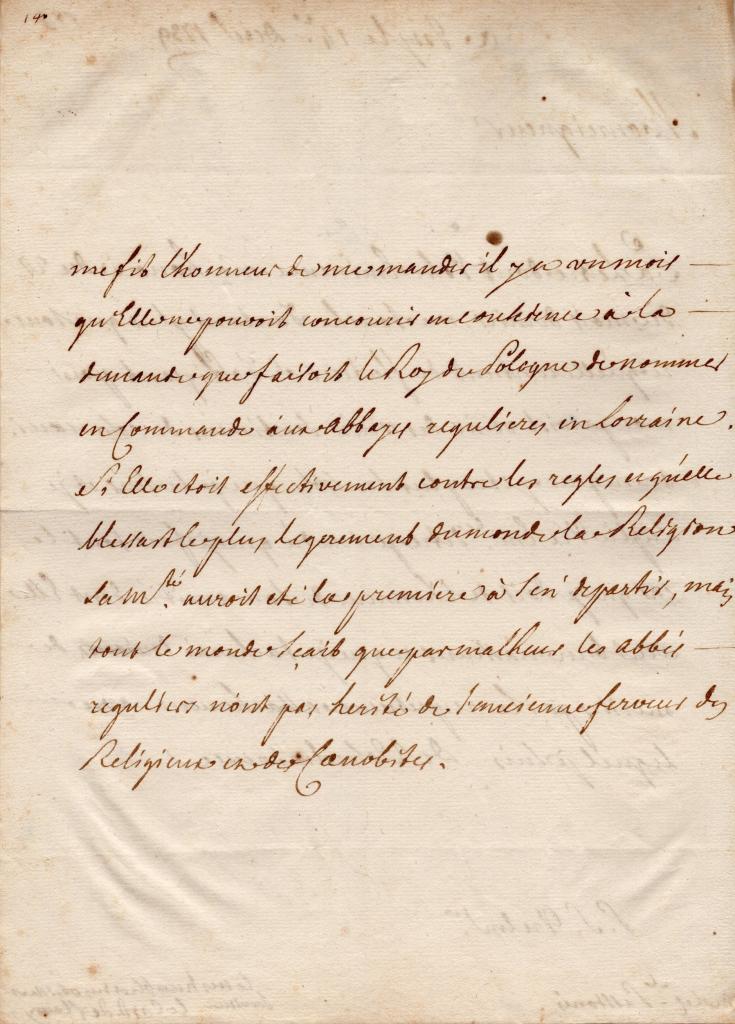 me fit l'honneur de me mander il y a un mois
qu'Elle ne pouvoit concourir en conscience à la
demande que faisoit le Roy de Pologne de nommer
en Commande aux abbayes regulieres en Lorraine.
Si Elle etoit effectivement contre les regles et qu'elle
blessast le plus legerement du monde la Religion
Sa M.té auroit eté la premiere à s'en departir, mais
tout le monde sçait que par malheur les abbés
reguliers n'ont pas herité de l'ancienne ferveur des
Religieux et des Cænobites.